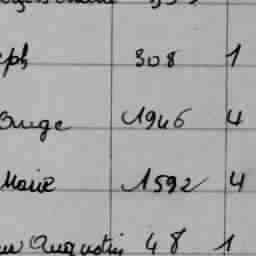 eph 308 1
Onge 1946 4
Marie 1592 4
Augustin 48 1